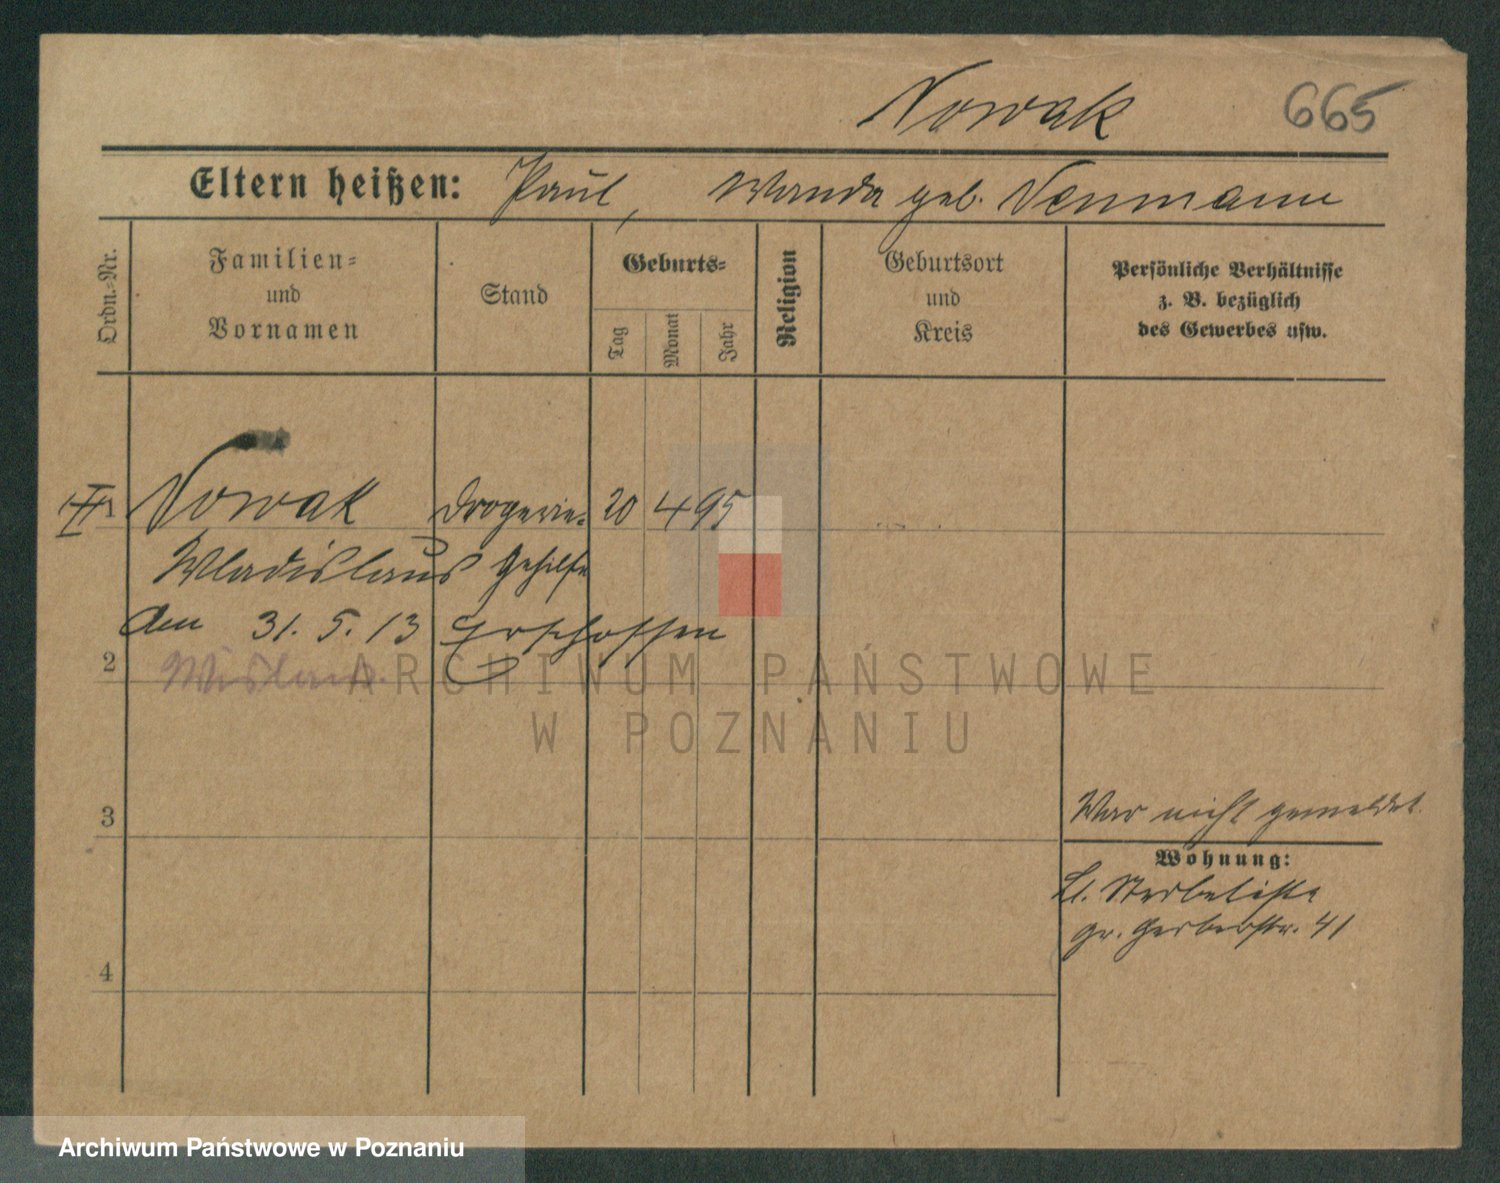 Nowak 665
Eltern heißen: Paul, Wanda geb. Neumann
Ordn.=Nr.
Familien=
und
Vornamen
Stand
Geburts=
Tag
Monat
Jahr
Religion
Geburtsort
und
Kreis
Persönliche Verhältnisse
z. B. bezüglich
des Gewerbes usw.
1 Nowak Drogerie= 20 4 95
Wladislaus Gehilfe
Am 31. 5. 13 Erschossen
2
3
War nicht gemeldet.
Wohnung:
Lt. Sterbeliste
gr. Gerberstr. 41
4
ARCHIWUM PAŃSTWOWE
W POZNANIU
Archiwum Państwowe w Poznaniu